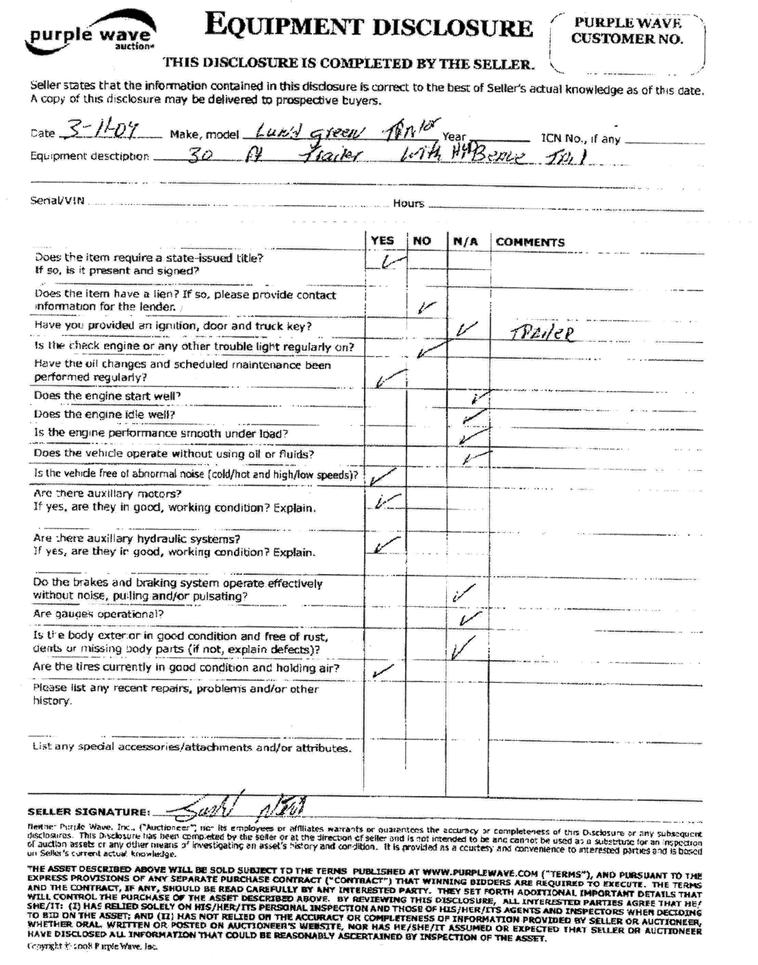 purple wave
auction
EQUIPMENT DISCLOSURE
PURPLE WAVE
CUSTOMER NO.
THIS DISCLOSURE IS COMPLETED BY THE SELLER.
Seller states that the information contained in this disclosure is correct to the best of Seller's actual knowledge as of this date.
A copy of this disclosure may be delivered to prospective buyers.
Date 3-11-09 Make, model green Year ICN No., if any
Equipment description 30 ft Trailer with
Serial/VIN Hours
YES NO N/A COMMENTS
Does the item require a state-issued title?
If so, is it present and signed? ✓
Does the item have a lien? If so, please provide contact
information for the lender. ✓
Have you provided an ignition, door and truck key? ✓ TRAILER
Is the check engine or any other trouble light regularly on? ✓
Have the oil changes and scheduled maintenance been
performed regularly? ✓
Does the engine start well? ✓
Does the engine idle well? ✓
Is the engine performance smooth under load? ✓
Does the vehicle operate without using oil or fluids? ✓
Is the vehicle free of abnormal noise (cold/hot and high/low speeds)? ✓
Are there auxiliary motors?
If yes, are they in good, working condition? Explain. ✓
Are there auxiliary hydraulic systems?
If yes, are they in good, working condition? Explain. ✓
Do the brakes and braking system operate effectively
without noise, pulling and/or pulsating? ✓
Are gauges operational? ✓
Is the body exterior in good condition and free of rust,
dents or missing body parts (if not, explain defects)? ✓
Are the tires currently in good condition and holding air? ✓
Please list any recent repairs, problems and/or other
history.
List any special accessories/attachments and/or attributes.
SELLER SIGNATURE:
Neither Purple Wave, Inc., ("Auctioneer") nor its employees or affiliates warrants or guarantees the accuracy or completeness of this Disclosure or any subsequent
disclosures. This Disclosure has been completed by the seller or at the direction of seller and is not intended to be and cannot be used as a substitute for an inspection
of auction assets or any other means of investigating an asset's history and condition. It is provided as a courtesy and convenience to interested parties and is based
on Seller's current actual knowledge.
"THE ASSET DESCRIBED ABOVE WILL BE SOLD SUBJECT TO THE TERMS PUBLISHED AT WWW.PURPLEWAVE.COM ("TERMS"), AND PURSUANT TO THE
EXPRESS PROVISIONS OF ANY SEPARATE PURCHASE CONTRACT ("CONTRACT") THAT WINNING BIDDERS ARE REQUIRED TO EXECUTE. THE TERMS
AND THE CONTRACT, IF ANY, SHOULD BE READ CAREFULLY BY ANY INTERESTED PARTY. THEY SET FORTH ADDITIONAL IMPORTANT DETAILS THAT
WILL CONTROL THE PURCHASE OF THE ASSET DESCRIBED ABOVE. BY REVIEWING THIS DISCLOSURE, ALL INTERESTED PARTIES AGREE THAT HE/
SHE/IT: (I) HAS RELIED SOLELY ON HIS/HER/ITS PERSONAL INSPECTION AND THOSE OF HIS/HER/ITS AGENTS AND INSPECTORS WHEN DECIDING
TO BID ON THE ASSET; AND (II) HAS NOT RELIED ON THE ACCURACY OR COMPLETENESS OF INFORMATION PROVIDED BY SELLER OR AUCTIONEER,
WHETHER ORAL, WRITTEN OR POSTED ON AUCTIONEER'S WEBSITE, NOR HAS HE/SHE/IT ASSUMED OR EXPECTED THAT SELLER OR AUCTIONEER
HAVE DISCLOSED ALL INFORMATION THAT COULD BE REASONABLY ASCERTAINED BY INSPECTION OF THE ASSET.
Copyright © 2008 Purple Wave, Inc.